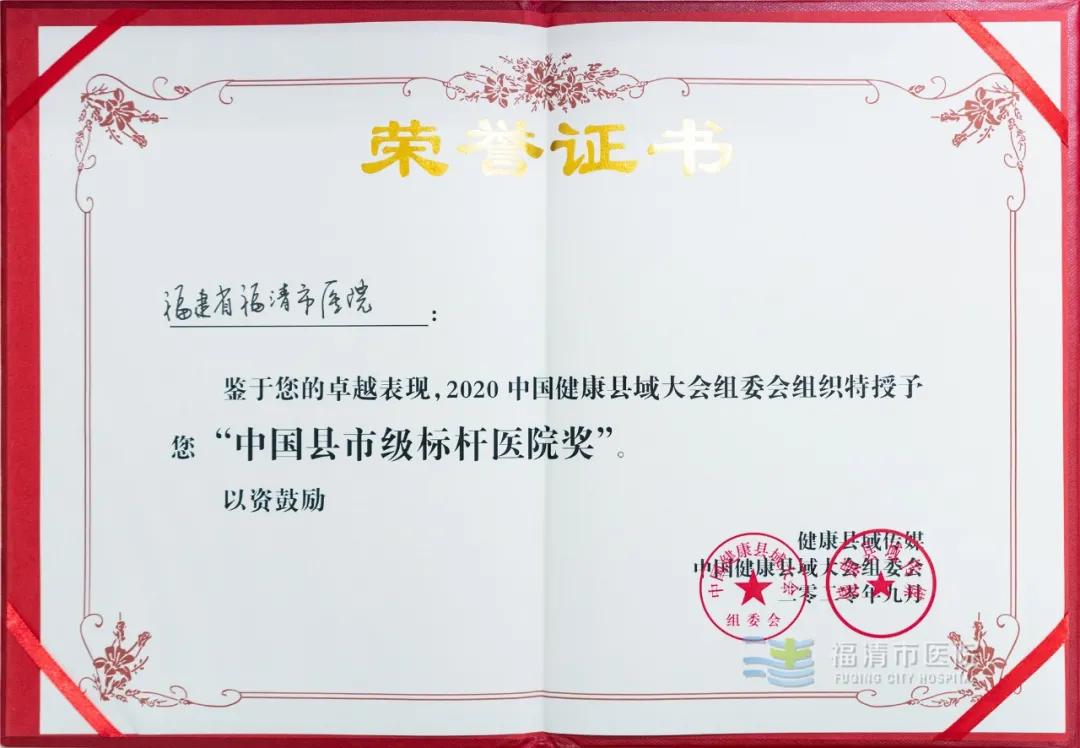 荣誉证书
福建省福清市医院：
鉴于您的卓越表现，2020中国健康县域大会组委会组织特授予
您“中国县市级标杆医院奖”。
以资鼓励
健康县域传媒
中国健康县域大会组委会
二零二零年九月
中国健康县域大会
组委会
健康县域传媒
福清市医院
FUQING CITY HOSPITAL